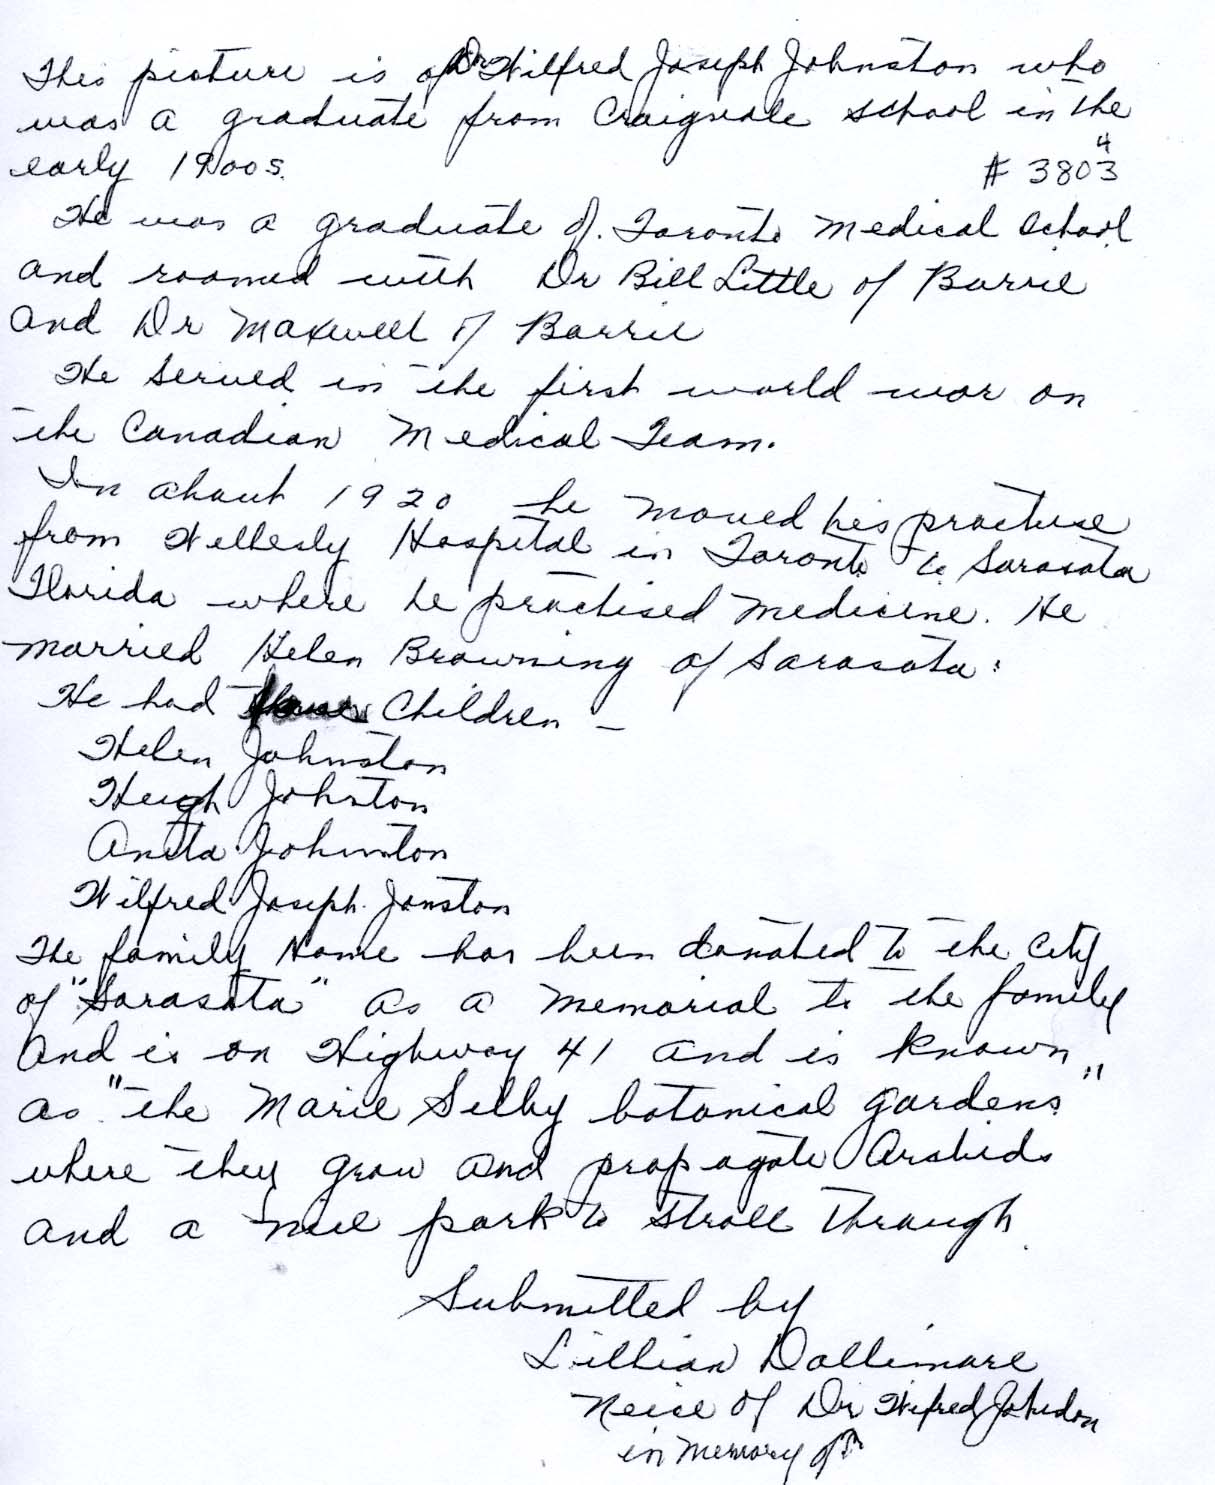 This picture is of Dr Wilfred Joseph Johnston who
was a graduate from Craigvale School in the
early 1900s.
# 3803 4
He was a graduate of Toronto Medical School
and roomed with Dr Bill Little of Barrie
and Dr Maxwell of Barrie
He served in the first world war on
the Canadian Medical Team.
In about 1920 he moved his practise
from Wellesly Hospital in Toronto to Sarasota
Florida where he practised medicine. He
married Helen Browning of Sarasota.
He had Children -
Helen Johnston
Hugh Johnston
Anita Johnston
Wilfred Joseph Jonston
The family Home has been donated to the City
of "Sarasota" as a memorial to the family
and is on Highway 41 and is known
as "the Marie Selby botanical gardens"
where they grow and propagate Orchids
and a nice park to stroll through.
Submitted by
Lillian Dallimore
Neice of Dr Wilfred Johnston
in memory of